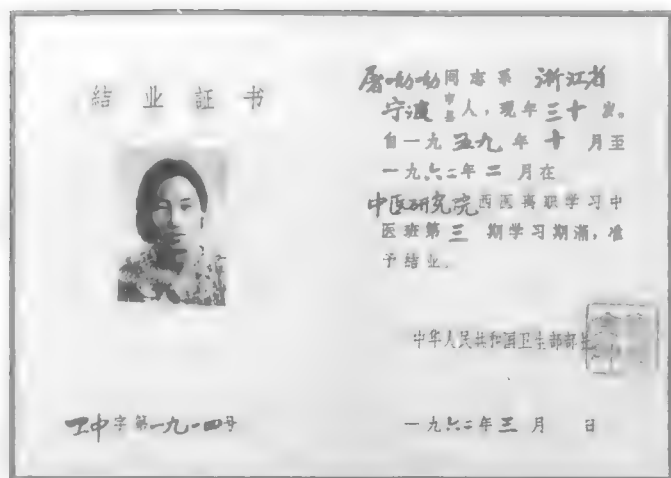 結业証书
卫中字第一九一四号
屠呦呦同志系 浙江省
宁波市县人，现年三十岁。
自一九五九年十月至
一九六二年二月在
中医研究院西医离职学习中
医班第三期学习期满，准
予结业。
中华人民共和国卫生部部长
一九六二年三月 日